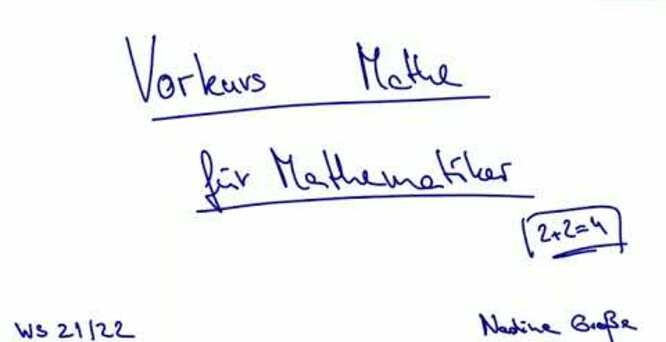 Vorkurs Mathe
für Mathematiker
2+2=4
WS 21/22 Nadine Große